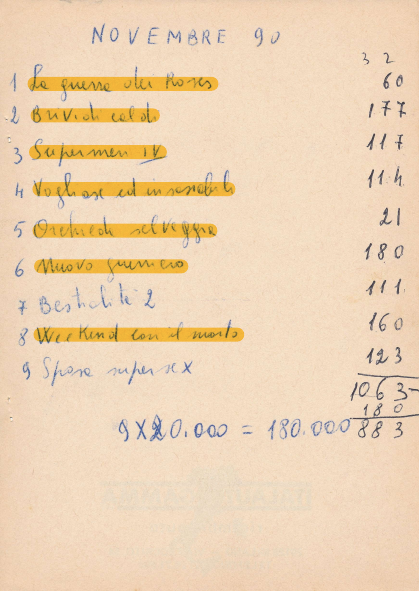 NOVEMBRE 90
3 2
1 La guerra dei Roses 60
2 Brividi caldi 177
3 Supermen IV 117
4 Vogliose ed insaziabili 114
5 Orchidea selvaggia 21
6 Nuovo guerriero 180
7 Bestialità 2 111
8 Weekend con il morto 160
9 Sposa supersex 123
1063-
180
9X20.000 = 180.000 883